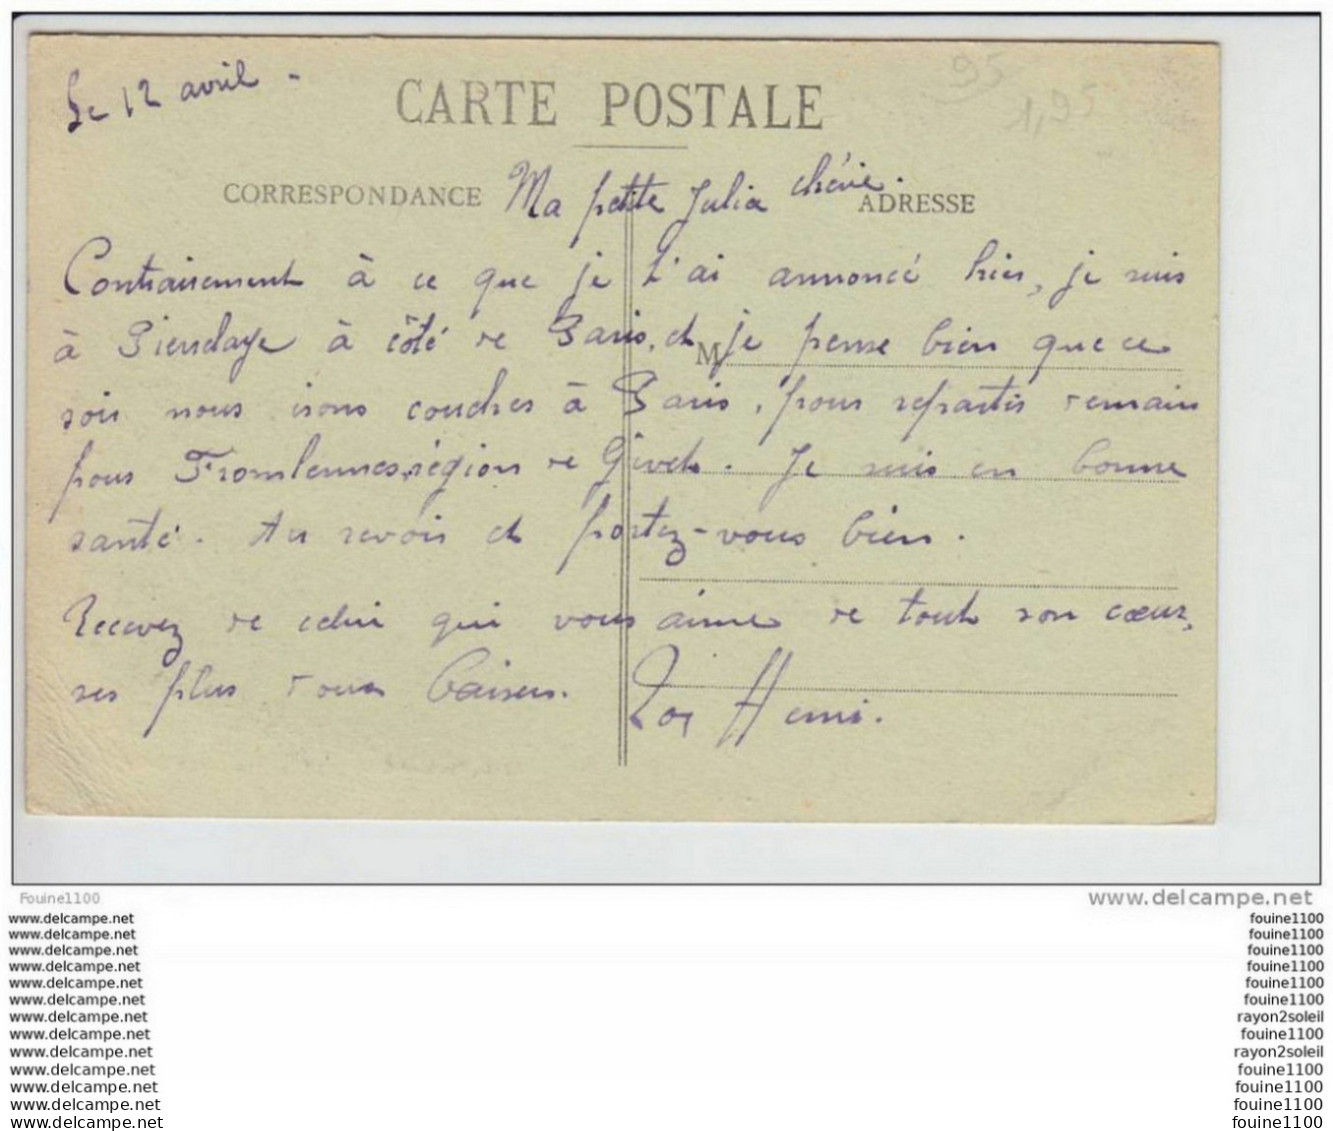 Le 12 avril -
95
1,95
CARTE POSTALE
CORRESPONDANCE
Ma petite Julia chérie.
ADRESSE
Contrairement à ce que je t'ai annoncé hier, je suis
à Pierrelaye à côté de Paris, et je pense bien que ce
M
soir nous irons coucher à Paris, pour repartir demain
pour Fromlennes, région de Givet. Je suis en bonne
santé. Au revoir et portez-vous bien.
Recevez de celui qui vous aime de tout son cœur,
ses plus doux baisers. Ton Henri.
Fouine1100
www.delcampe.net
www.delcampe.net fouine1100
www.delcampe.net fouine1100
www.delcampe.net fouine1100
www.delcampe.net fouine1100
www.delcampe.net fouine1100
www.delcampe.net fouine1100
www.delcampe.net rayon2soleil
www.delcampe.net fouine1100
www.delcampe.net rayon2soleil
www.delcampe.net fouine1100
www.delcampe.net fouine1100
www.delcampe.net fouine1100
www.delcampe.net fouine1100